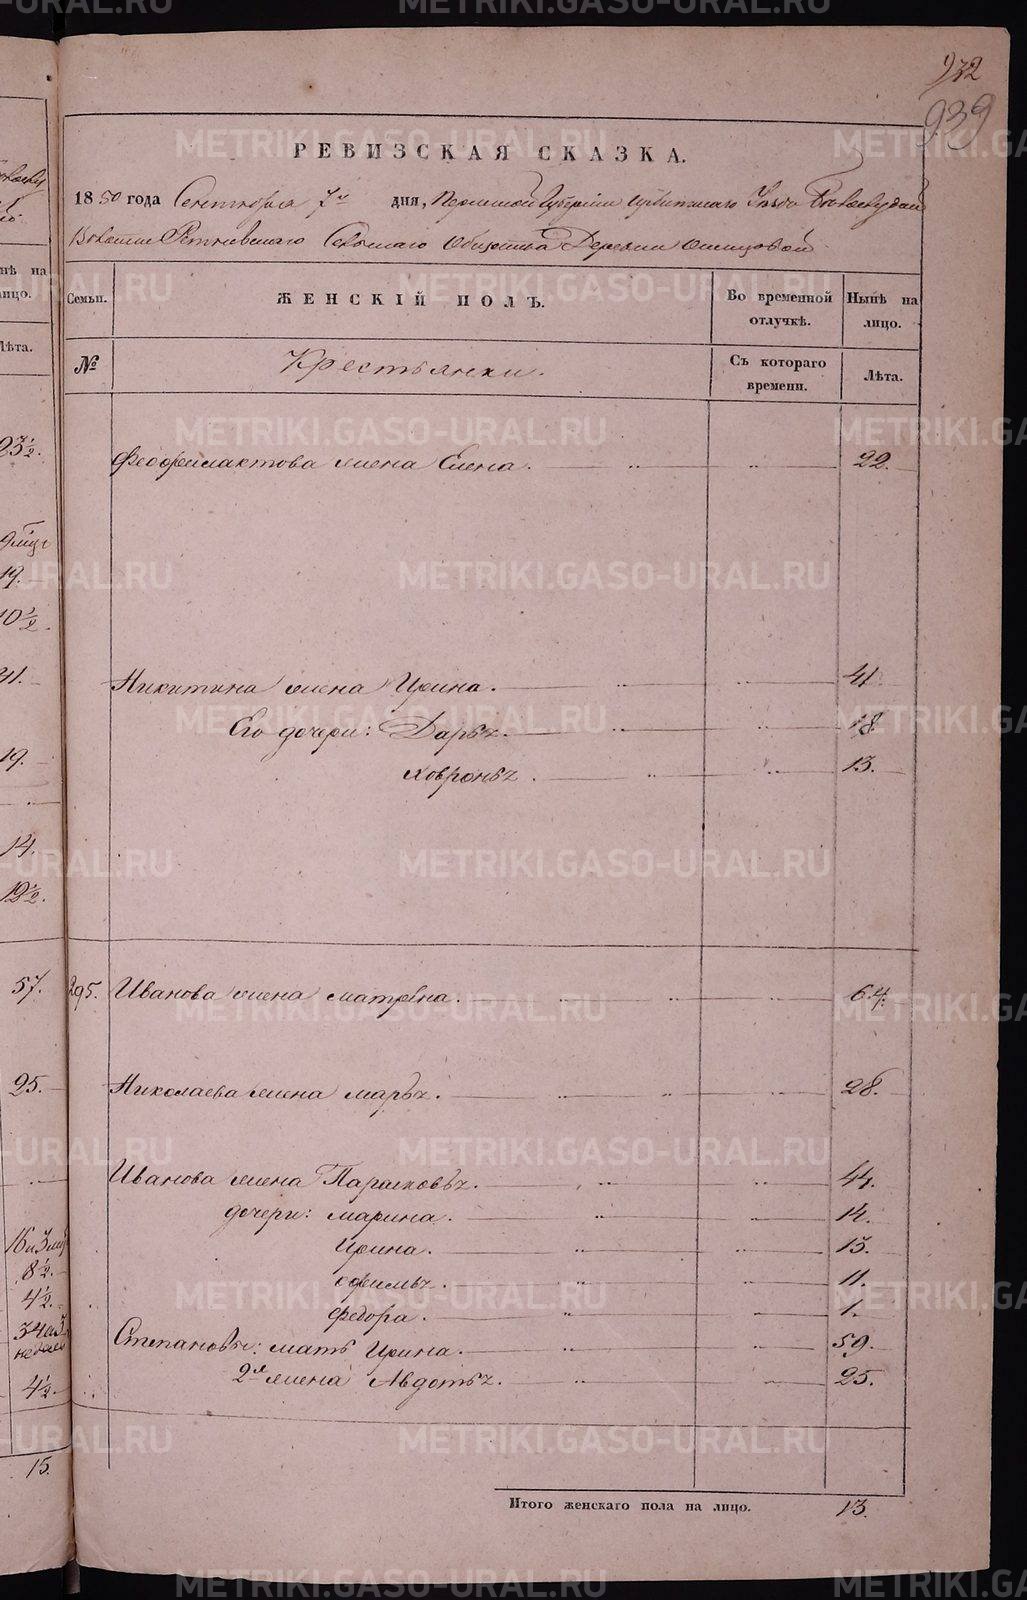 932
939
РЕВИЗСКАЯ СКАЗКА.
1850 года Сентября 7го дня, Пермской Губернии Ирбитскаго Уѣзда
Волости Сельскаго Общества Деревни
Семьи. ЖЕНСКІЙ ПОЛЪ. Во временной отлучкѣ. Нынѣ на лицо.
№ Крестьянки. Съ котораго времени. Лѣта.
Феофилактова жена Елена. 22.
Никитина жена Ирина. 41
Его дочери: Дарья. 18.
Ховронья. 13.
295. Иванова жена Матрена. 64.
Николаева жена Марья. 28.
Иванова жена Парасковья. 44.
дочери: Марина. 14.
Ирина. 13.
Офимья. 11.
Федора. 1.
Степановы: мать Ирина. 59.
2я жена Авдотья. 25.
Итого женскаго пола на лицо. 13.
нѣ на
лицо.
Лѣта.
23½.
19.
10½.
41.
19.
14.
12½.
57.
25.
8½.
4½.
4½.
15.
METRIKI.GASO-URAL.RU